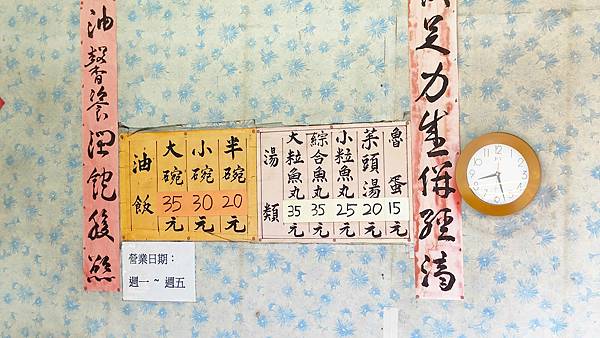 油馨飡溫飽酸熊
油飯
大碗35元
小碗30元
半碗20元
湯類
大粒魚丸35元
綜合魚丸35元
小粒魚丸25元
菜頭湯20元
魯蛋15元
營業日期：
週一 ~ 週五
足力生併經濟